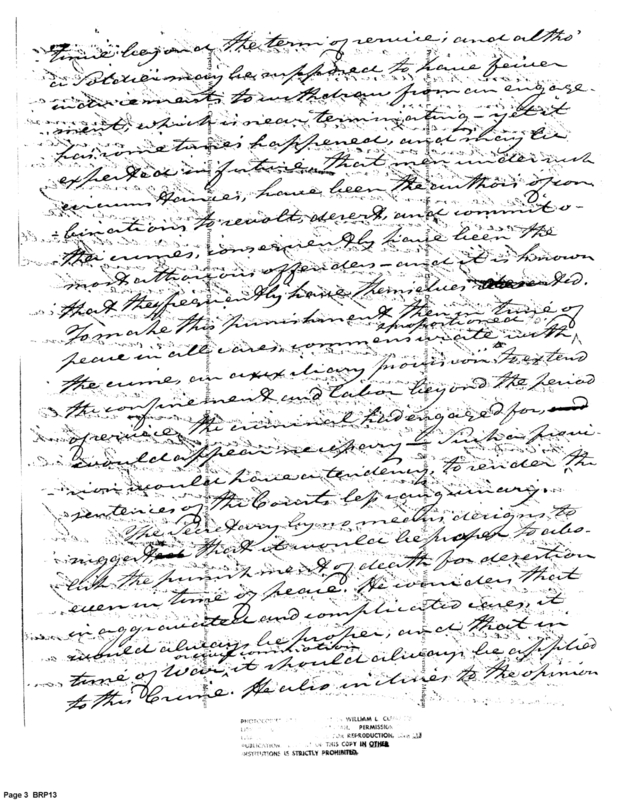 time beyond the term of service; and altho'
a Soldier may be supposed to have fewer
inducements to withdraw from an engage-
ment, which is near terminating – yet it
has sometimes happened, and may be
expected in future that men under such
circumstances, have been the authors of com-
-binations to revolt, desert, and commit o-
ther crimes, consequently have been the
most atrocious offenders – and it is known
that they frequently have themselves deserted.
To make this punishment then in time of
peace in all cases commensurate with
proportioned
the crimes an auxiliary provision to extend
the confinement and labor beyond the period
of service the criminal had engaged for,
would appear necessary – Such a provi-
sion would have a tendency to render the
sentences of the Courts less sanguinary.
The Secretary by no means designs to
suggest that it would be proper to abo-
lish the punishment of death for desertion
even in time of peace. He considers that
in aggravated and complicated cases, it
would always be proper, and that in
time of War, it should always be applied
on conviction
to this Crime. He also inclines to the opinion
WILLIAM L.
PERMISSION
FOR REPRODUCTION
PUBLICATION OF THIS COPY IN OTHER
INSTITUTIONS IS STRICTLY PROHIBITED.
Page 3 BRP13